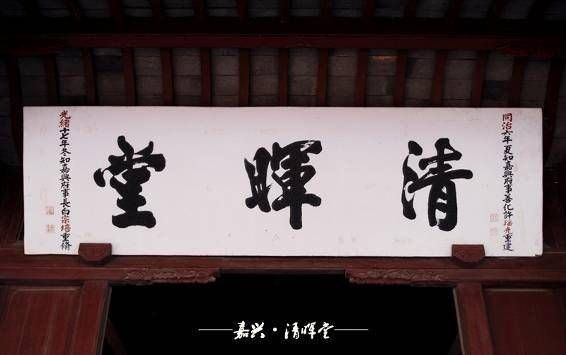 同治六年夏知嘉興府事善化許瑤光重建
清暉堂
光緒十七年冬知嘉興府事長白宗培重修
嘉兴·清晖堂